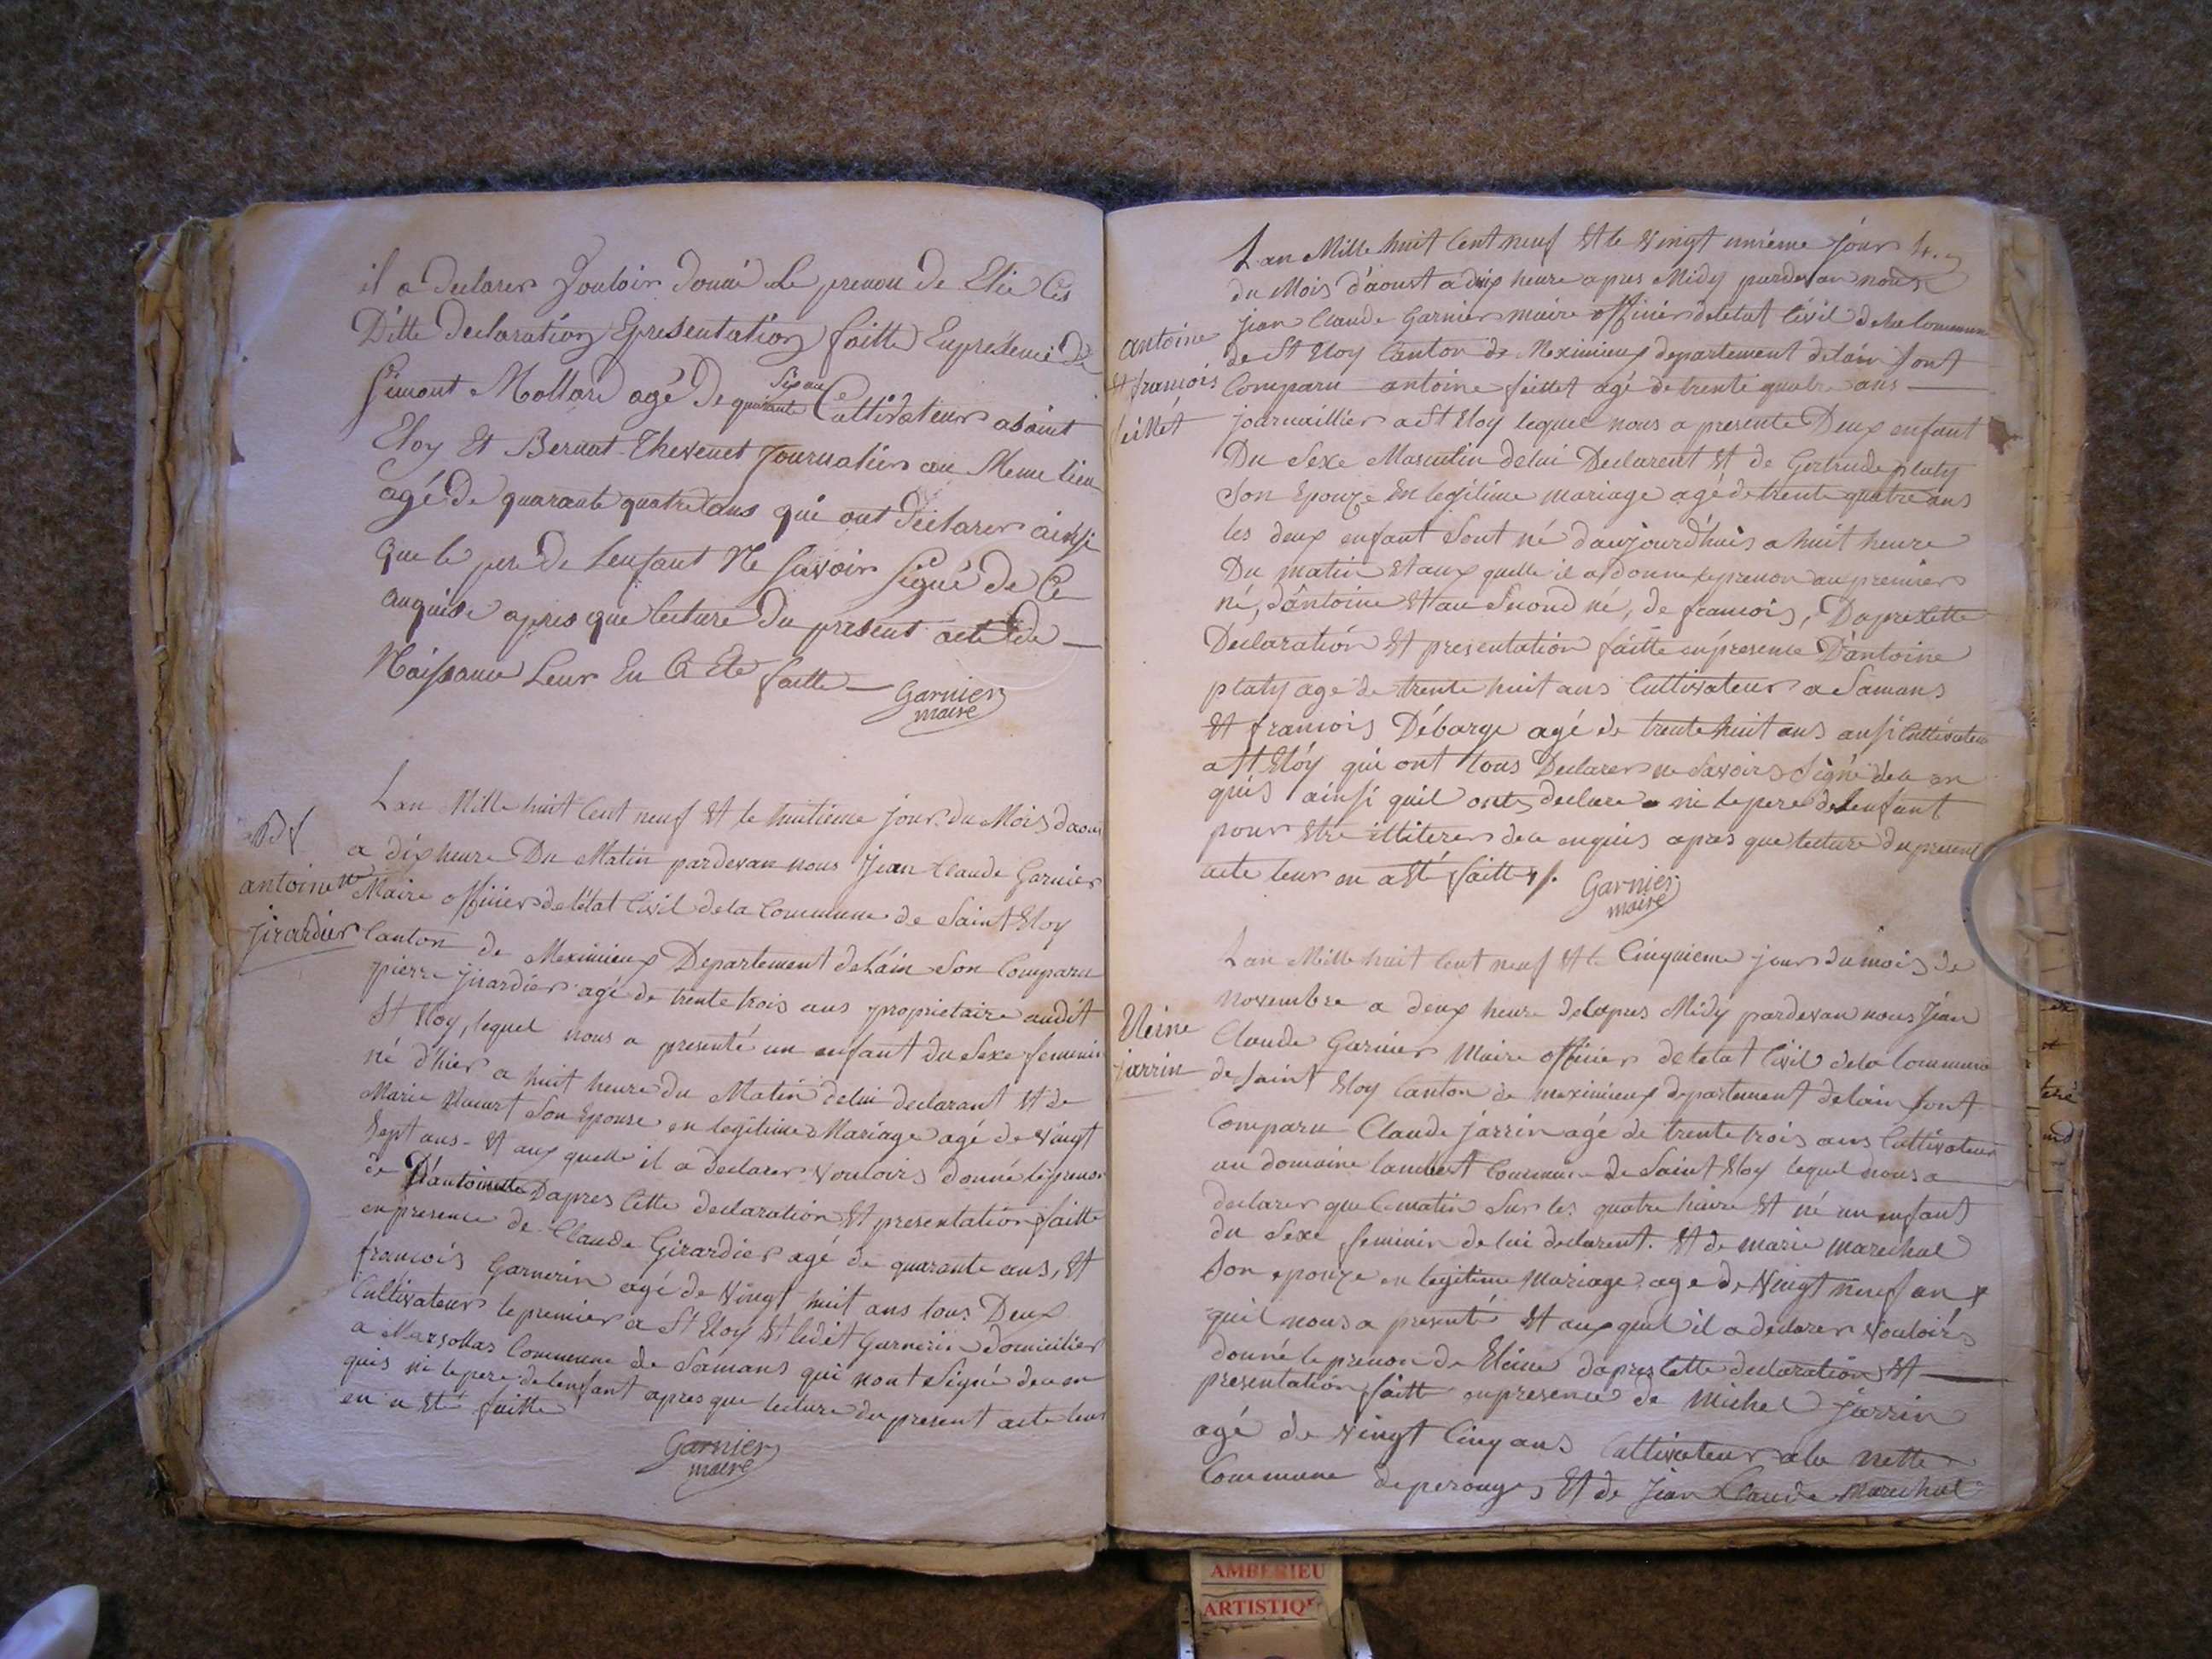 il a declarer Vouloir donné Le prenon de Elie Ces
Ditte declaration Epresentation faitte En presence De
Simont Mollard agé De quarante Six ans Cultivateur a saint
Eloy Et Bernat Thevenet Journalier au Meme lieu
agé De quarante quatre ans qui ont declarer ainsi
que le pere De Lenfant Ne Savoir Signé de Ce
anquise apres que lecture Du present acte de
Naissance Leur En A Ete faitte
Garnier
maire
Lan Mille huit Cent neuf Et le huitieme jour du Mois daoust
a dix heure Du Matin pardevan nous Jean Claude Garnier
antoinette Maire officier de letat Civil de la Commune de Saint Eloy
jirardier Canton de Meximieux Departement de Lain Son Comparu
pierre jirardier agé de trente trois ans proprietaire audit
St Eloy, lequel nous a presenté un enfant du Sexe feminin
né d'hier a huit heure du Matin de lui declarant Et de
Marie Son Epouse en legitime Mariage agé de vingt
Sept ans Et aux quelle il a declarer vouloirs donné le prenon
de D'antoinette Dapres Cette declaration Et presentation faitte
en presence de Claude Girardier agé de quarante ans, Et
francois Garnerin agé de vingt huit ans tous Deux
Cultivateur le premier a St Eloy Et ledit Garnerin domicilier
a Marsollas Commune de Samans qui nont Signé de ce en
quis ni le pere de lenfant apres que lecture du present acte leur
en a Eté faitte
Garnier
maire
Lan Mille huit Cent neuf Et le vingt unieme jour
du Mois d'aoust a dix heure apres Midy pardevan nous
jean Claude Garnier maire officier de letat Civil de la Commune
antoine de St Eloy Canton de Meximieux departement de lain Sont
Et francois Comparu antoine feillet agé de trente quatre ans
feillet journaillier a St Eloy lequel nous a presente Deux enfant
Du Sexe Masculin de lui Declarent Et de Gertrude platy
Son Epouze En legitime mariage agé de trente quatre ans
les deux enfant Sont né daujourdhuis a huit heure
Du matin Et aux quelle il a donne le prenon au premier
né, d'antoine Et au Second né, de francois, Dapres Cette
Declaration Et presentation faitte en presence D'antoine
platy age de trente huit ans Cultivateur a Samans
Et francois Débarge agé de trente huit ans ausi Cultivateur
a St Elóy qui ont tous Declarer ne Savoirs Signé de ce en
quis ainsi quil onts declare ni le pere de lenfant
pour Etre illiterer de ce enquis apres que lecture du present
acte leur en a Eté faitte
Garnier
maire
Lan Mille huit Cent neuf Et le Cinquieme jour du mois de
novembre a deux heure de lapres Midy pardevan nous Jean
Claude Garnier Maire officier de letat Civil de la Commune
jarrin de Saint Eloy Canton de meximieux departement de lain Sont
Comparu Claude jarrin agé de trente trois ans Cultivateur
au domaine lambert Commune de Saint Eloy lequel nous a
declarer que Cematin Sur les quatre heure Et né un enfant
du Sexe feminin de lui declarent. Et de marie marechal
Son epouze en legitime Mariage age de vingt neuf an
quil nous a presenté Et aux quel il a declarer vouloirs
donné le prenon de dapres Cette declaration Et
presentation faitt en presence de Michel jarrin
agé de vingt Cinq ans Cultivateur a la nette
Commune de perouges Et de Jean Claude Marechal
AMBERIEU
ARTISTIQ